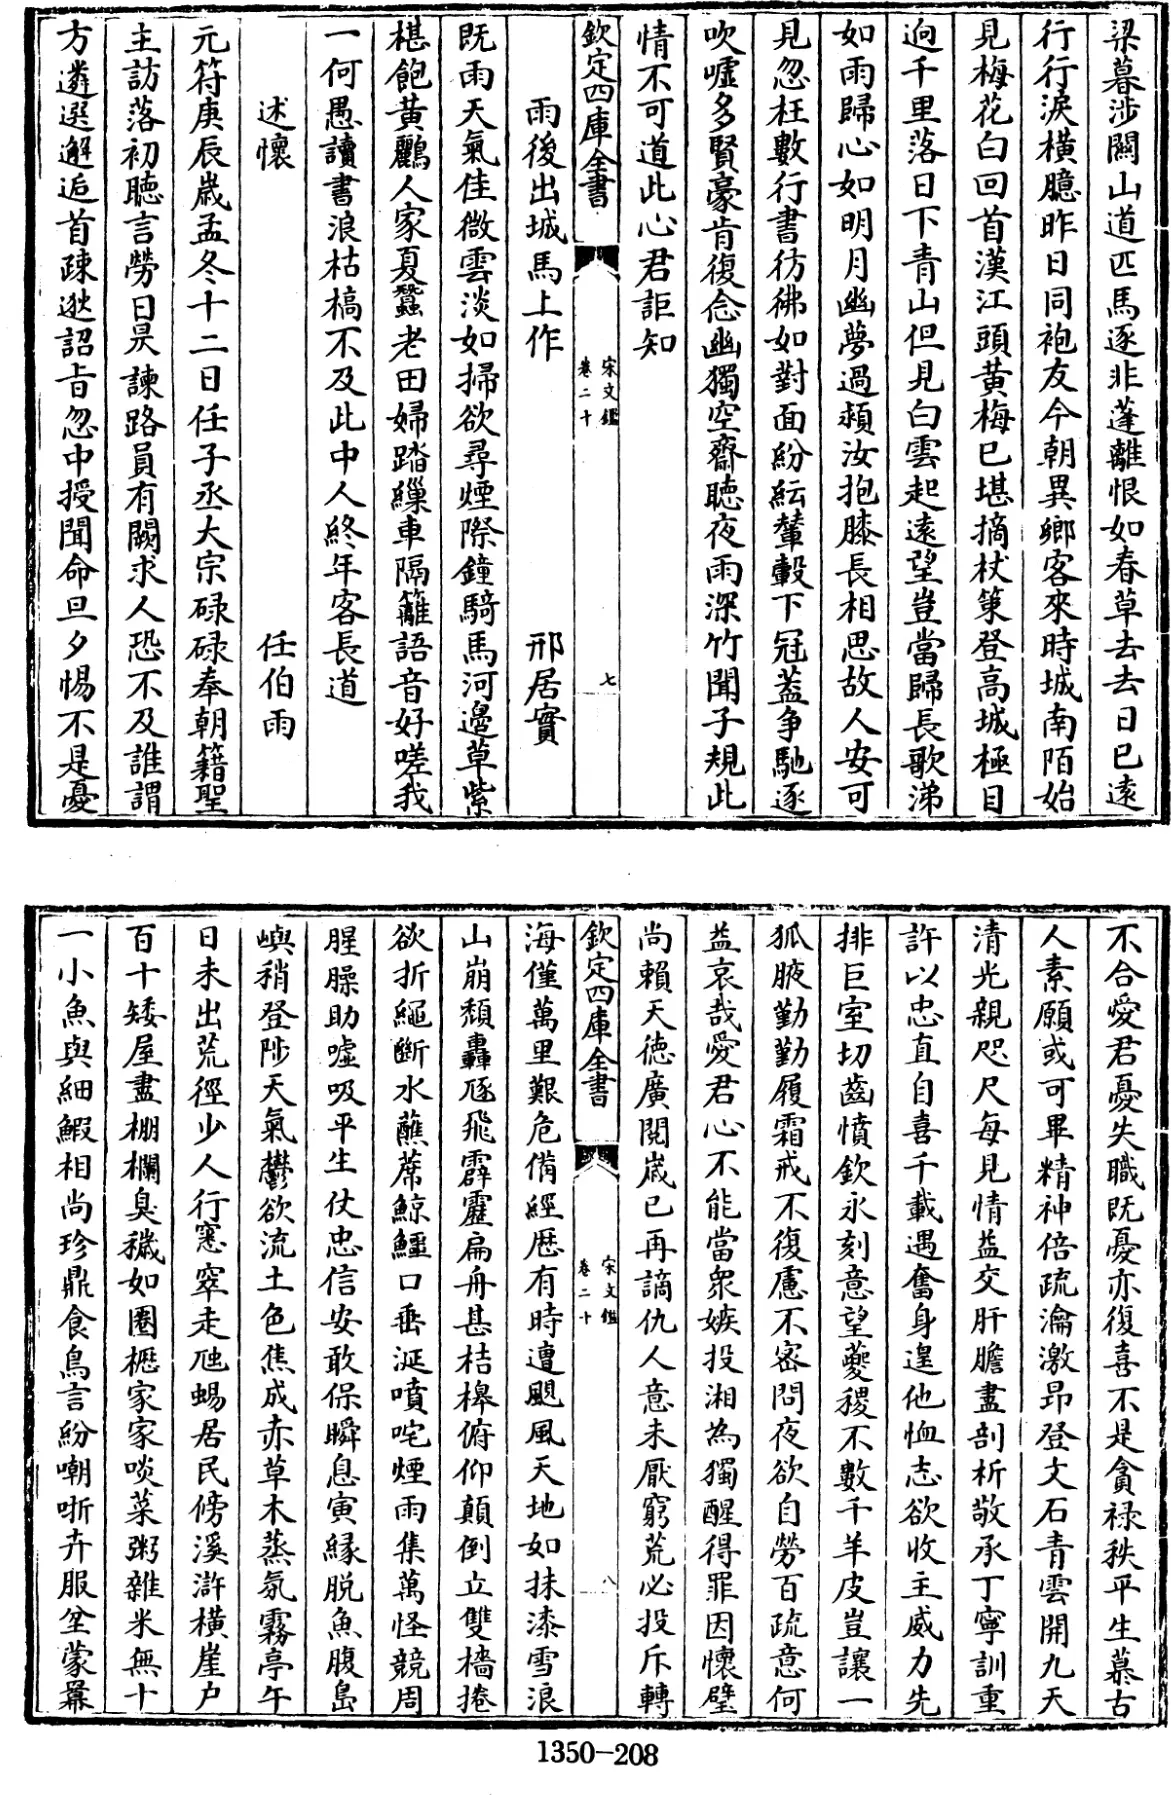 梁暮涉關山道匹馬逐非蓬離恨如春草去去日已遠
行行淚横臆昨日同袍友今朝異鄉客來時城南陌始
見梅花白回首漢江頭黄梅已堪摘杖策登高城極目
逈千里落日下青山但見白雲起遠望豈當歸長歌涕
如雨歸心如明月幽夢過潁汝抱膝長相思故人安可
見忽枉數行書彷彿如對面紛紜輦轂下冠蓋争馳逐
吹嘘多賢豪肯復念幽獨空齋聴夜雨深竹聞子規此
情不可道此心君詎知
欽定四庫全書
宋文鑑
卷二十
七
雨後出城馬上作
邢居實
既雨天氣佳微雲淡如掃欲尋煙際鐘騎馬河邊草紫
椹飽黄鸝人家夏蠶老田婦踏繅車隔籬語音好嗟我
一何愚讀書浪枯槁不及此中人終年客長道
述懷
任伯雨
元符庚辰歲孟冬十二日任子丞大宗碌碌奉朝籍聖
主訪落初聴言勞日昃諫路員有闕求人恐不及誰謂
方遴選邂逅首疎逖詔㫖忽中授聞命旦夕惕不是憂
不合愛君憂失職既憂亦復喜不是貪禄秩平生慕古
人素願或可畢精神倍疏瀹激昂登文石青雲開九天
清光親咫尺每見情益交肝膽盡剖析敬承丁寧訓重
許以忠直自喜千載遇奮身遑他恤志欲收主威力先
排巨室切齒憤欽永刻意望夔稷不數千羊皮豈讓一
狐腋勤勤履霜戒不復慮不密問夜欲自勞百疏意何
益哀哉愛君心不能當衆嫉投湘為獨醒得罪因懷璧
尚賴天德廣閱歲已再謫仇人意未厭窮荒必投斥轉
欽定四庫全書
宋文鑑
卷二十
八
海僅萬里艱危備經歴有時遭颶風天地如抹漆雪浪
山崩頽轟豗飛霹靂扁舟甚桔槔俯仰顛倒立雙檣捲
欲折繩斷水蘸蓆鯨鱷口垂涎噴咤煙雨集萬怪競周
腥臊助嘘吸平生仗忠信安敢保瞬息寅緣脱魚腹島
嶼稍登陟天氣鬱欲流土色焦成赤草木蒸氛霧亭午
日未出荒徑少人行窸窣走虺蜴居民傍溪滸横崖户
百十矮屋盡棚欄臭穢如圈櫪家家啖菜粥雜米無十
一小魚與細鰕相尚珍鼎食鳥言紛嘲哳卉服坌蒙羃
1350-208